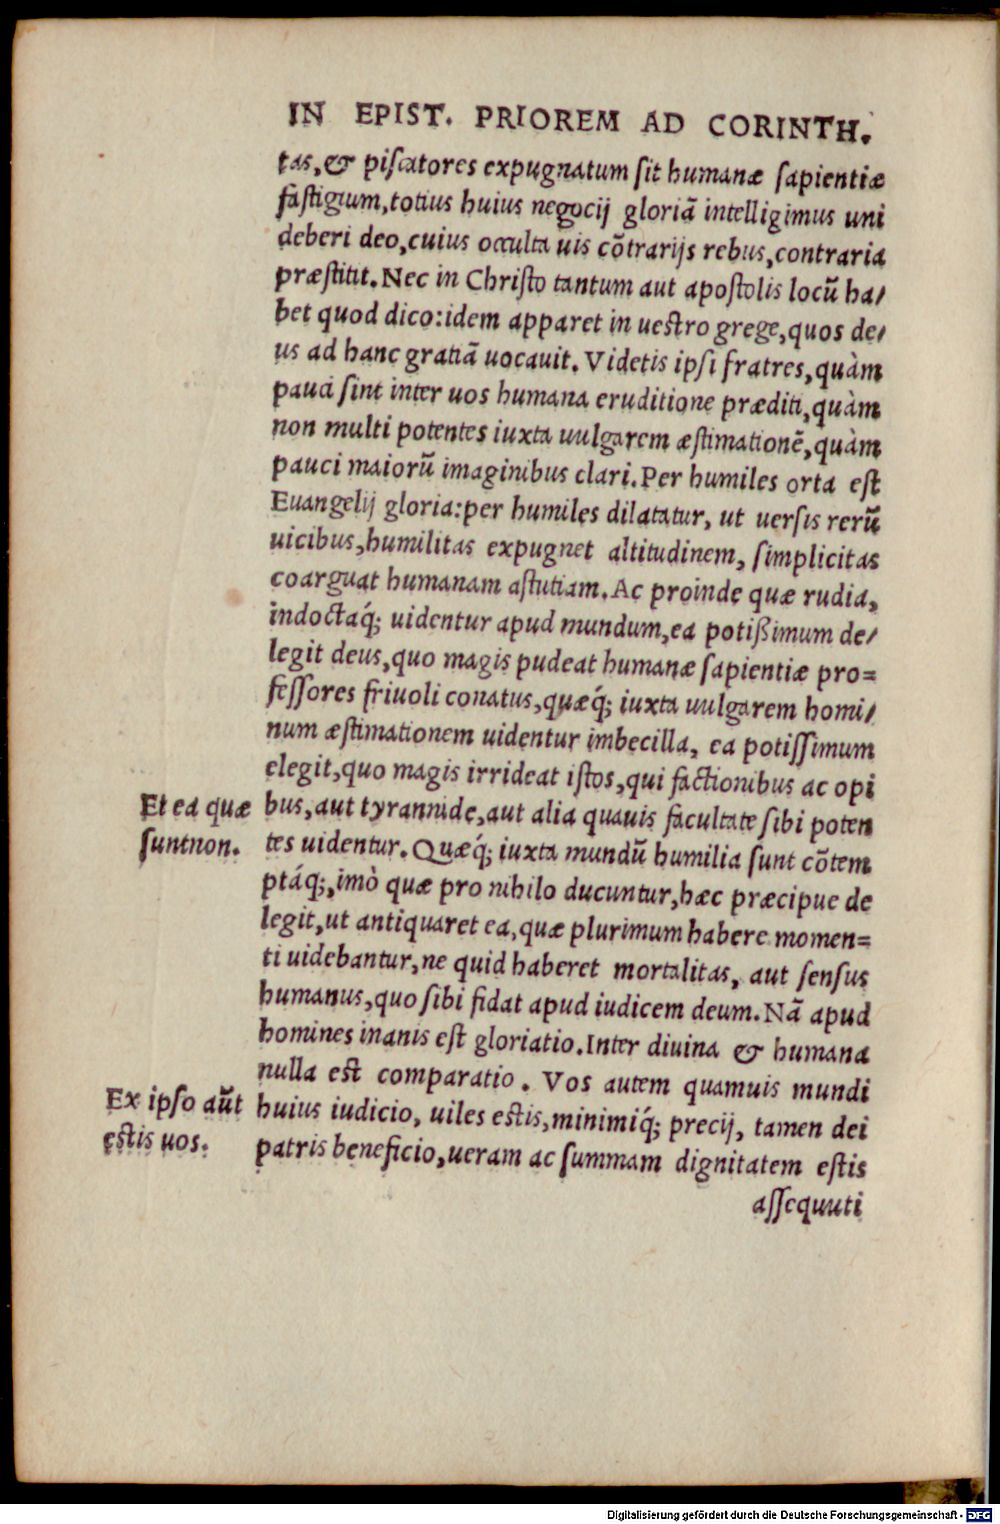 IN EPIST. PRIOREM AD CORINTH.
tas,& piscatores expugnatum sit humanæ sapientiæ
fastigium,totius huius negocij gloriā intelligimus uni
deberi deo,cuius occulta uis cōtrarijs rebus,contraria
præstitit. Nec in Christo tantum aut apostolis locū ha/
bet quod dico:idem apparet in uestro grege,quos de/
us ad hanc gratiā uocauit. Videtis ipsi fratres,quàm
pauci sint inter uos humana eruditione præditi,quàm
non multi potentes iuxta uulgarem æstimationē,quàm
pauci maiorū imaginibus clari. Per humiles orta est
Euangelij gloria:per humiles dilatatur, ut uersis rerū
uicibus,humilitas expugnet altitudinem, simplicitas
coarguat humanam astutiam. Ac proinde quæ rudia,
indoctaq́; uidentur apud mundum,ea potißimum de/
legit deus,quo magis pudeat humanæ sapientiæ pro=
fessores friuoli conatus,quæq́; iuxta uulgarem homi/
num æstimationem uidentur imbecilla, ea potissimum
elegit,quo magis irrideat istos,qui factionibus ac opi
Et ea quæ
suntnon.
bus,aut tyrannide,aut alia quauis facultate sibi poten
tes uidentur. Quæq́; iuxta mundū humilia sunt cōtem
ptáq;,imò quæ pro nihilo ducuntur,hæc præcipue de
legit,ut antiquaret ea,quæ plurimum habere momen=
ti uidebantur,ne quid haberet mortalitas, aut sensus
humanus,quo sibi fidat apud iudicem deum. Nā apud
homines inanis est gloriatio. Inter diuina & humana
nulla est comparatio. Vos autem quamuis mundi
Ex ipso aūt
estis uos.
huius iudicio, uiles estis,minimiq́; precij, tamen dei
patris beneficio,ueram ac summam dignitatem estis
assequuti
Digitalisierung gefördert durch die Deutsche Forschungsgemeinschaft - DFG